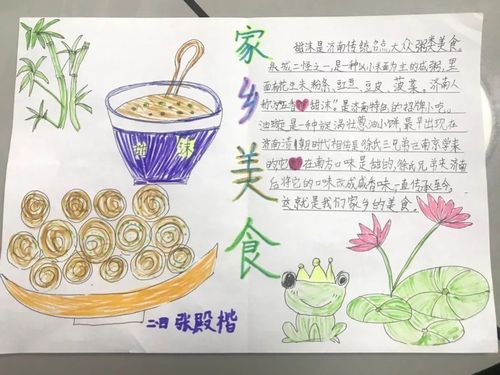 家乡美食
甜沫
甜沫是济南传统名点,大众粥类美食,
泉城二怪之一,是一种以小米面为主的咸粥,里
面有花生米粉条、豇豆、豆皮、菠菜、济南人
"甜沫"是济南特色的招牌小吃。
油旋是一种旋涡状葱油小饼,最早出现在
济南清朝时代相传是徐氏三兄弟去南京学来
的 在南方口味是甜的,徐氏兄弟来济南
后将它的口味改成咸香味一直传承至今。
这就是我们家乡的美食。
二.四 张殿楷